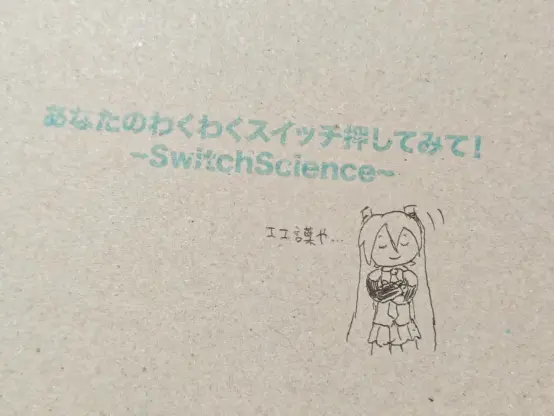 あなたのわくわくスイッチ押してみて!
~SwitchScience~
エエ言葉や…